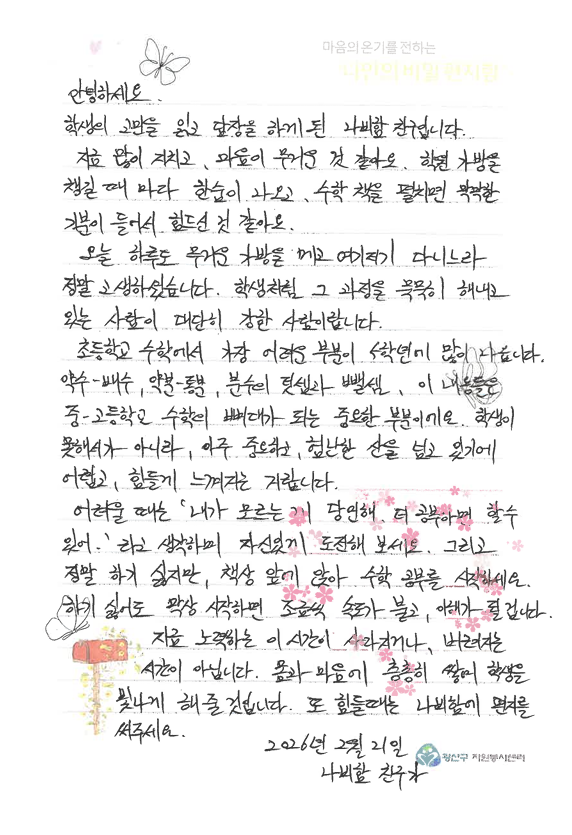 마음의 온기를 전하는
나만의 비밀 편지함
안녕하세요.
학생의 고민을 읽고 답장을 하게 된 나비함 친구입니다.
지금 많이 지치고, 마음이 무거운 것 같아요. 학원 가방을
챙길 때 마다 한숨이 나오고, 수학 책을 펼치면 막막한
기분이 들어서 힘드신 것 같아요.
오늘 하루도 무거운 가방을 메고 여기저기 다니느라
정말 고생하셨습니다. 학생처럼 그 과정을 묵묵히 해내고
있는 사람이 대단히 강한 사람이랍니다.
초등학교 수학에서 가장 어려운 부분이 5학년에 많이 나옵니다.
약수-배수, 약분-통분, 분수의 덧셈과 뺄셈, 이 내용들은
중-고등학교 수학의 뼈대가 되는 중요한 부분이에요. 학생이
못해서가 아니라, 아주 중요하고, 험난한 산을 넘고 있기에
어렵고, 힘들게 느껴지는 거랍니다.
어려울 때는 '내가 모르는 게 당연해. 더 공부하면 할 수
있어.' 라고 생각하며 자신있게 도전해 보세요. 그리고
정말 하기 싫지만, 책상 앞에 앉아 수학 공부를 시작하세요.
하기 싫어도 막상 시작하면 조금씩 속도가 붙고, 이해가 될 겁니다.
지금 노력하는 이 시간이 사라지거나, 버려지는
시간이 아닙니다. 몸과 마음에 층층히 쌓여 학생을
빛나게 해 줄 것입니다. 또 힘들때는 나비함에 편지를
써주세요.
2026년 2월 21일
나비함 친구가
광산구 자원봉사센터